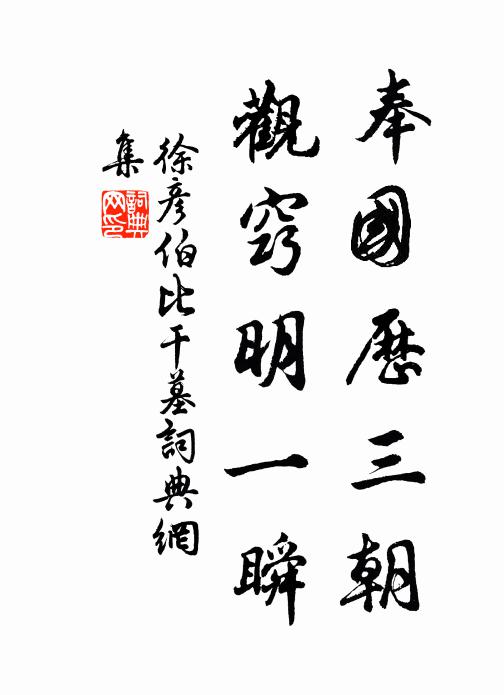 奉國歷三朝
觀竅明一瞬
徐彦伯比干墓詞典網
集
詞典
网印